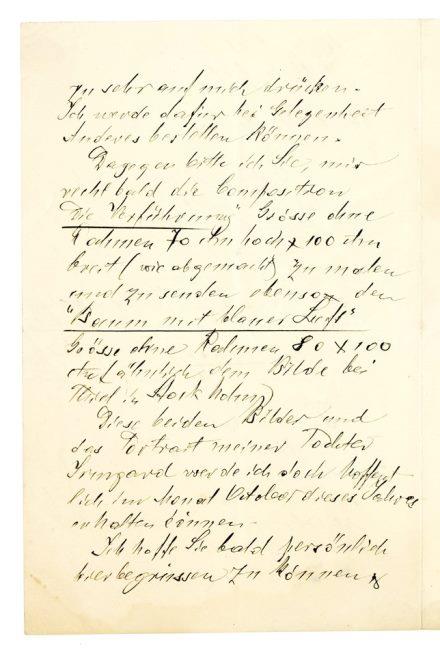 zu sehr auf mich drücken.
Ich werde dafür bei Gelegenheit
Anderes bestellen können.
Dagegen bitte ich Sie, mir
recht bald die Composition
"Die Verführung" Grösse ohne
Rahmen 70 ctm hoch x 100 ctm
breit (wie abgemacht) zu malen
und zu senden ebenso den
"Baum mit blauer Luft"
Grösse ohne Rahmen 80 x 100
ctm (ähnlich dem Bilde bei
Thiel in Stockholm)
Diese beiden Bilder und
das Portrait meiner Tochter
Irmgard werde ich doch hoffent
lich im Monat October dieses Jahres
erhalten können.
Ich hoffe Sie bald persönlich
hier begrüssen zu können